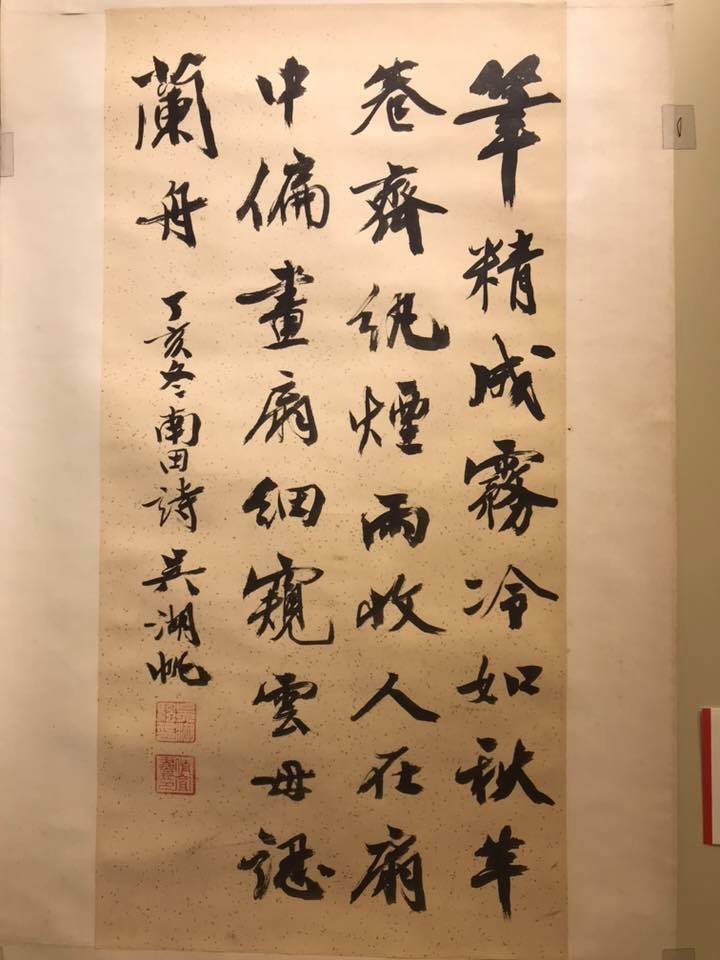 筆精成霧冷如秋半
卷齊紈煙雨收人在扇
中偏畫扇細窺雲母認
蘭舟 丁亥冬南田詩 吳湖帆